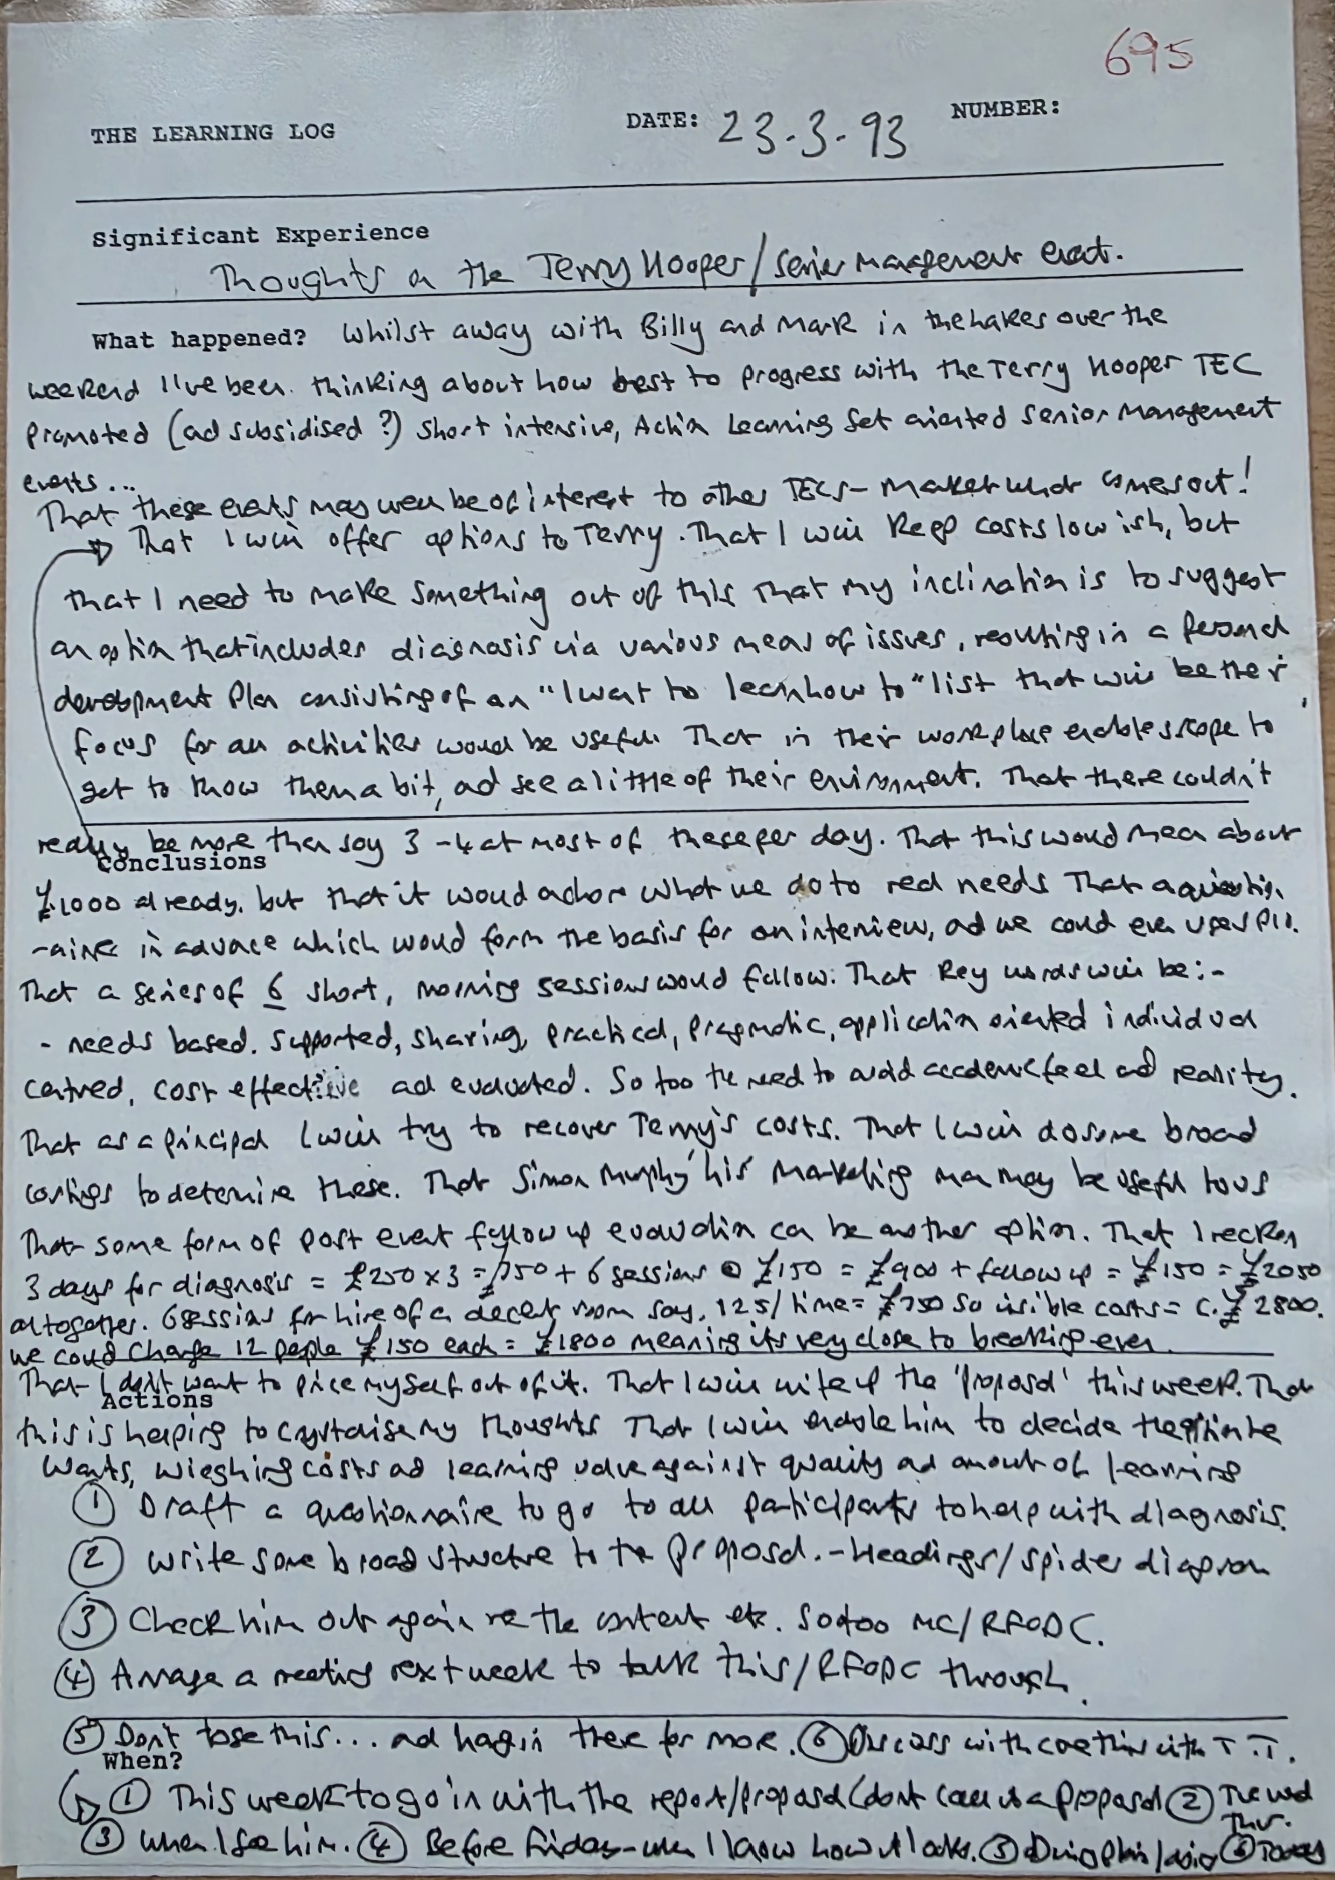 695
THE LEARNING LOG
DATE: 23.3.93
NUMBER:
Significant Experience
Thoughts on the Terry Hooper/Senior Management event.
What happened? Whilst away with Billy and Mark in the Lakes over the
weekend I've been thinking about how best to progress with the Terry Hooper TEC
promoted (and subsidised?) short intensive, Action Learning Set oriented senior Management
events...
That these events may well be of interest to other TECs - Market what comes out!
That I will offer options to Terry. That I will keep costs lowish, but
that I need to make something out of this That my inclination is to suggest
an option that includes diagnosis via various means of issues, resulting in a Personal
development Plan consisting of an "I want to learn how to" list that will be their
focus for all activities would be useful. That in their workplace enables scope to
get to know them a bit, and see a little of their environment. That there couldn't
really be more than say 3-4 at most of these per day. That this would mean about
Conclusions
£1000 already, but that it would anchor what we do to real needs That a question
-aire in advance which would form the basis for an interview, and we could even use
That a series of 6 short, morning sessions would follow. That Key words will be:-
- needs based, supported, sharing, practical, pragmatic, application oriented individual
centred, cost effective and evaluated. So too the need to avoid academic feel and reality.
That as a principal I will try to recover Terry's costs. That I will do some broad
costings to determine these. That Simon Murphy 'his' Marketing man may be useful to us
That some form of post event follow up evaluation can be another option. That I reckon
3 days for diagnosis = £250 x 3 = £750 + 6 sessions @ £150 = £900 + follow up = £150 = £2050
altogether. 6 sessions for hire of a decent room say, 125/time = £750 So visible costs = c. £2800.
we could charge 12 people £150 each = £1800 meaning its very close to breaking even.
That I don't want to price myself out of it. That I will write up the 'proposal' this week. That
Actions
this is helping to crystalise my thoughts That I will enable him to decide the option he
wants, wieghing costs and learning value against quality and amount of learning
① Draft a questionnaire to go to all participants to help with diagnosis.
② Write some broad structure to the proposal. - Headings/spider diagram
③ Check him out again re the content etc. So too MC/RFODC.
④ Arrange a meeting next week to talk this/RFODC through.
⑤ Don't lose this... and hang in there for more. ⑥ Discuss with with T.T.
When?
① This week to go in with the report/proposal (dont call it a proposal ② Tue wed
Thur.
③ When I see him. ④ Before Friday - when I know how it looks. ⑤ ⑥ Today